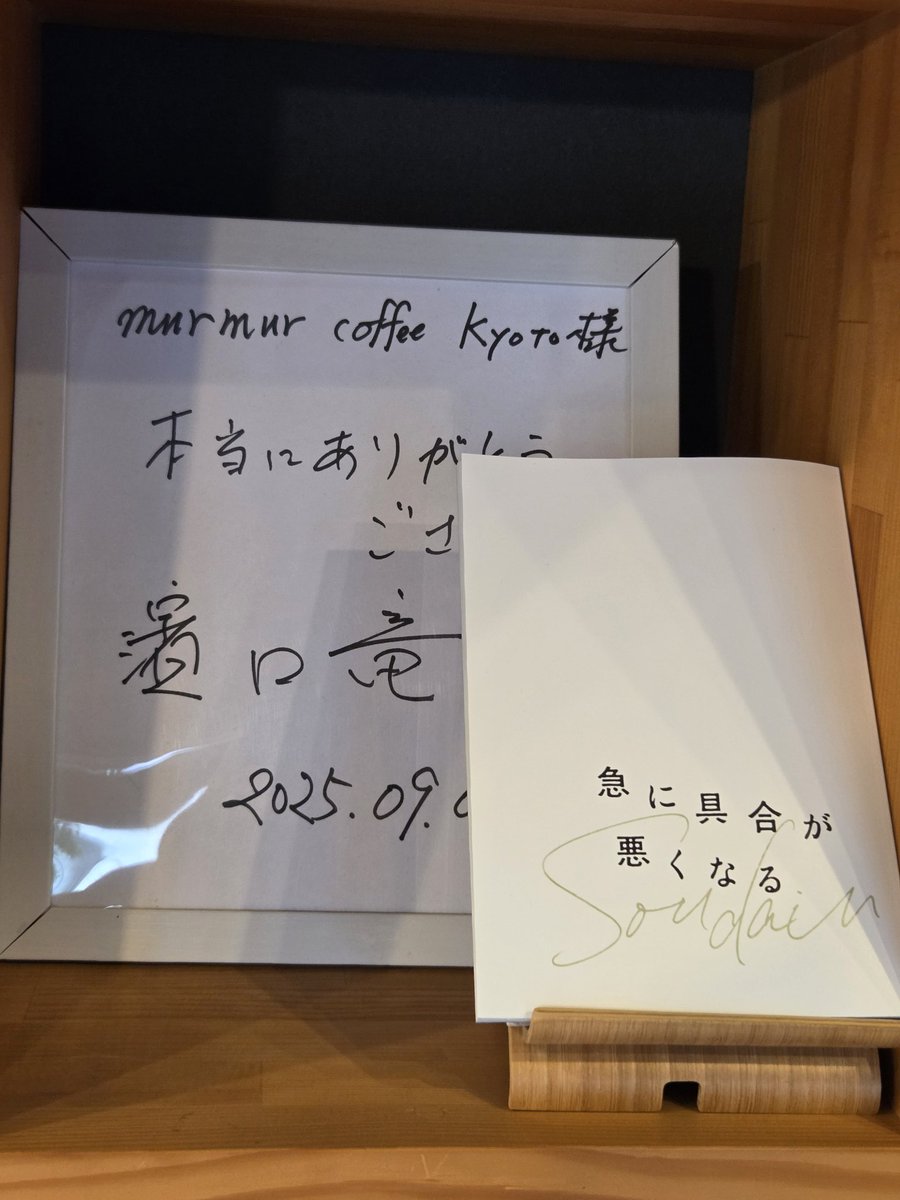 murmur coffee Kyoto様
本当にありがとう
ござ
濱口竜
2025.09.0
急に具合が
悪くなる
Soudain